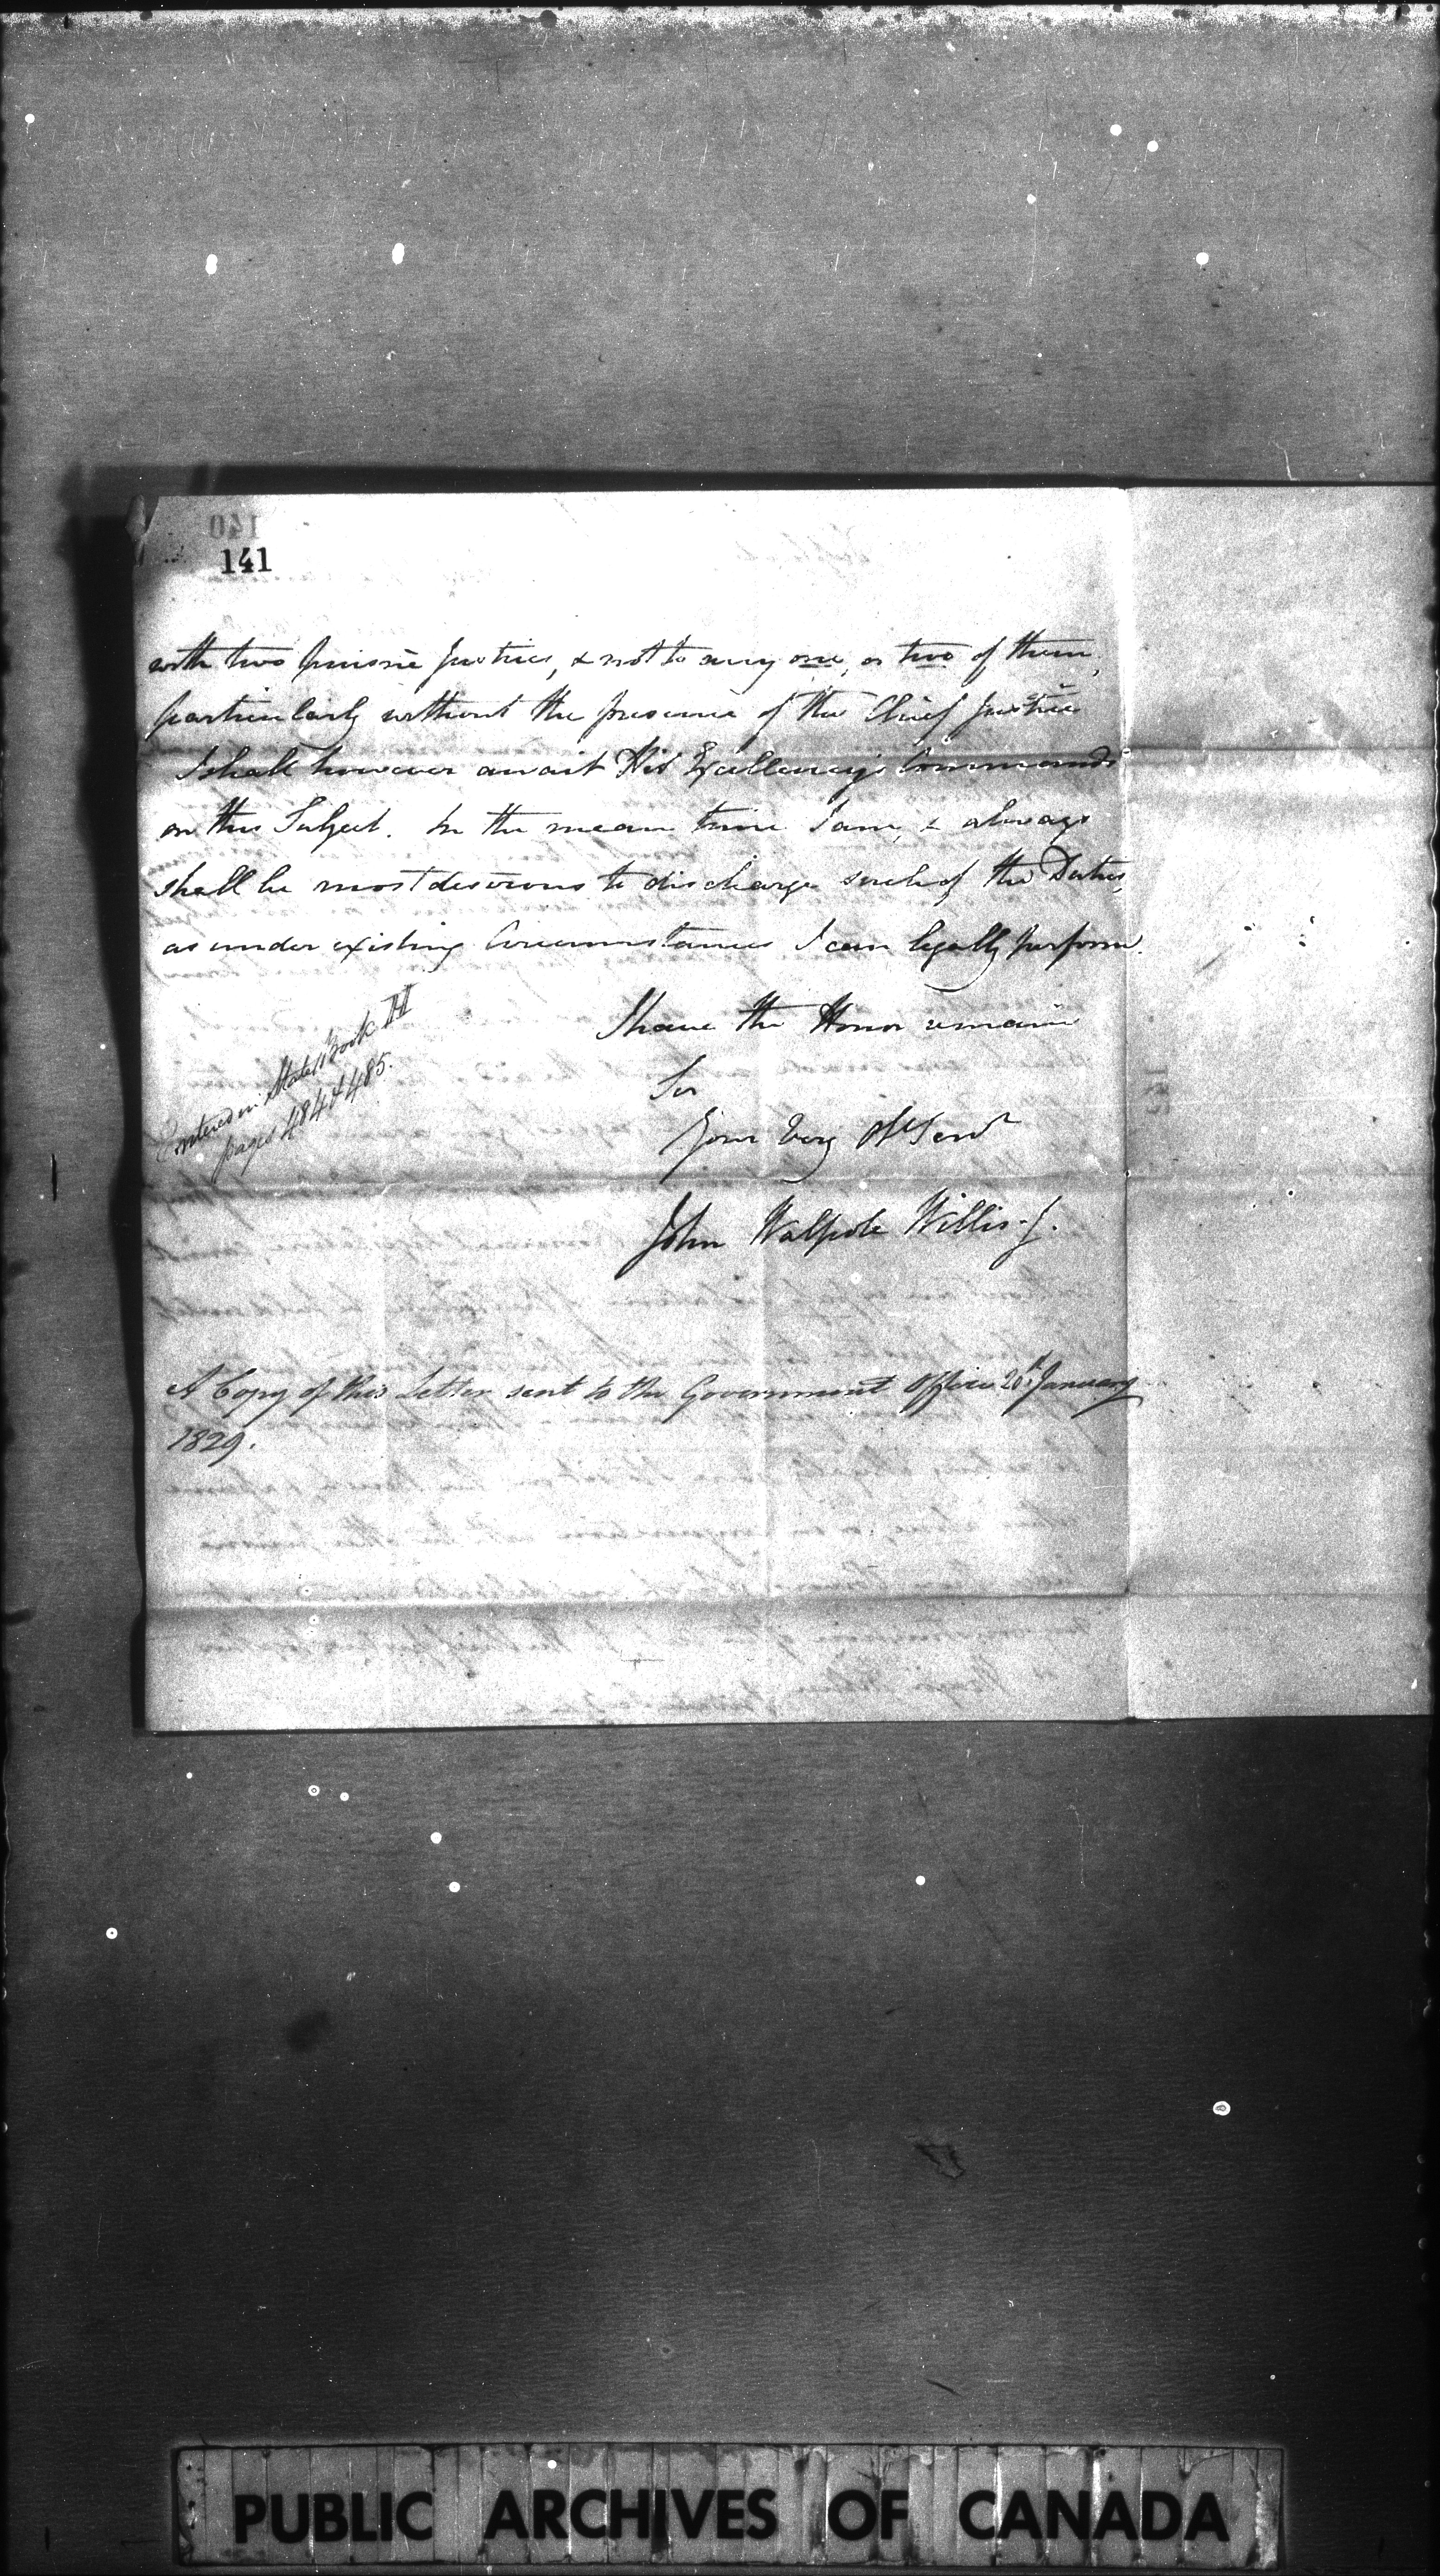 140
141
with two Puisnè Justices, & not to any one, or two of them,
particularly without the presence of the Chief Justice
I shall however await His Excellency's Commands
on this Subject. In the mean time I am, & always
shall be most desirous to discharge such of the Duties,
as under existing Circumstances I can legally perform.
I have the Honor remain
Sir
Your Very Obt Servt
John Walpole Willis. J.
Entered in State Book H
pages 484 & 485.
A Copy of this Letter sent to the Government Office 20th January
1829.
PUBLIC ARCHIVES OF CANADA